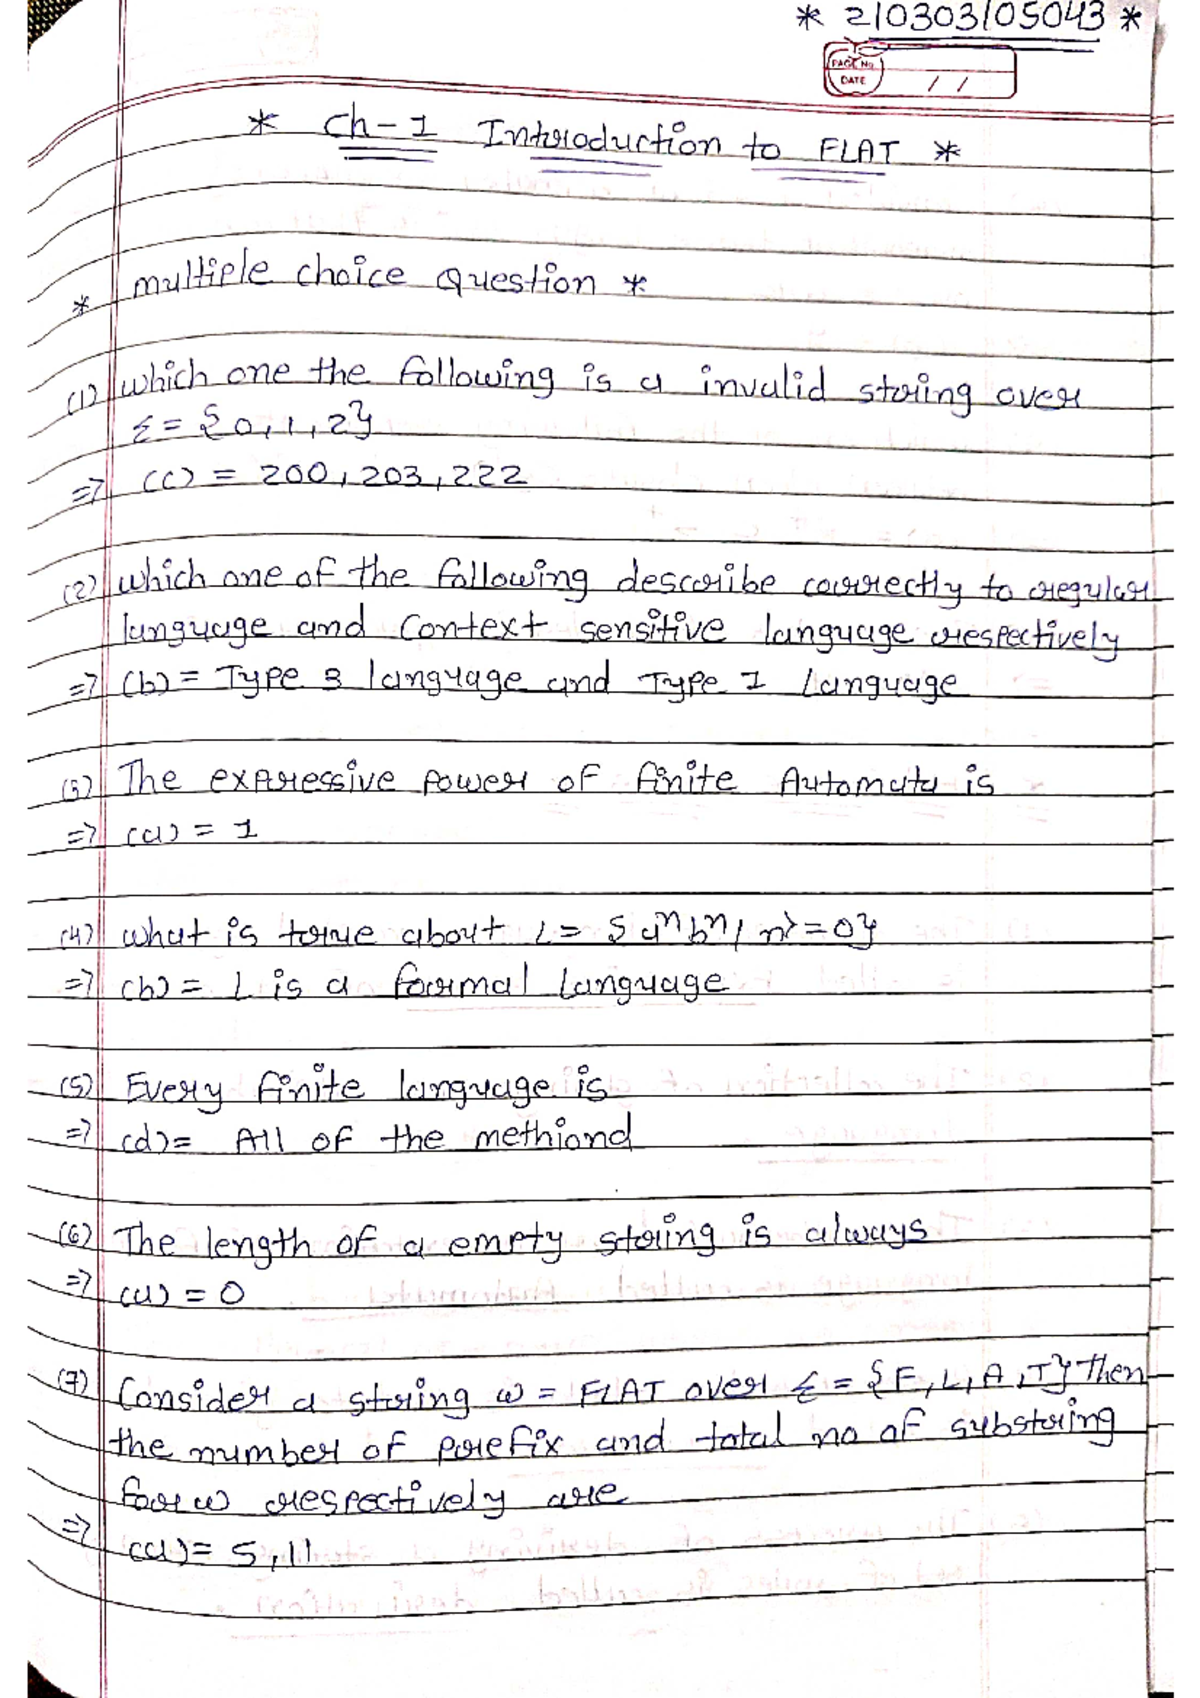 * 210303105043 *
PAGE No.
DATE / /
* Ch-1 Introduction to FLAT *
* multiple choice Question *
(1) which one the following is a invalid string over
Σ = {0,1,2}
=> (c) = 200,203,222
(2) which one of the following describe correctly to regular
language and context sensitive language respectively
=> (b) = Type 3 language and Type 1 Language
(3) The expressive power of finite Automata is
=> (a) = 1
(4) what is true about L = {a^n b^n / n>=0}
=> (b) = L is a formal Language
(5) Every finite language is
=> (d) = All of the methiond
(6) The length of a empty string is always
=> (a) = 0
(7) Consider a string w = FLAT over Σ = {F,L,A,T} Then
the number of prefix and total no of substring
for w respectively are
=> (a) = 5,11